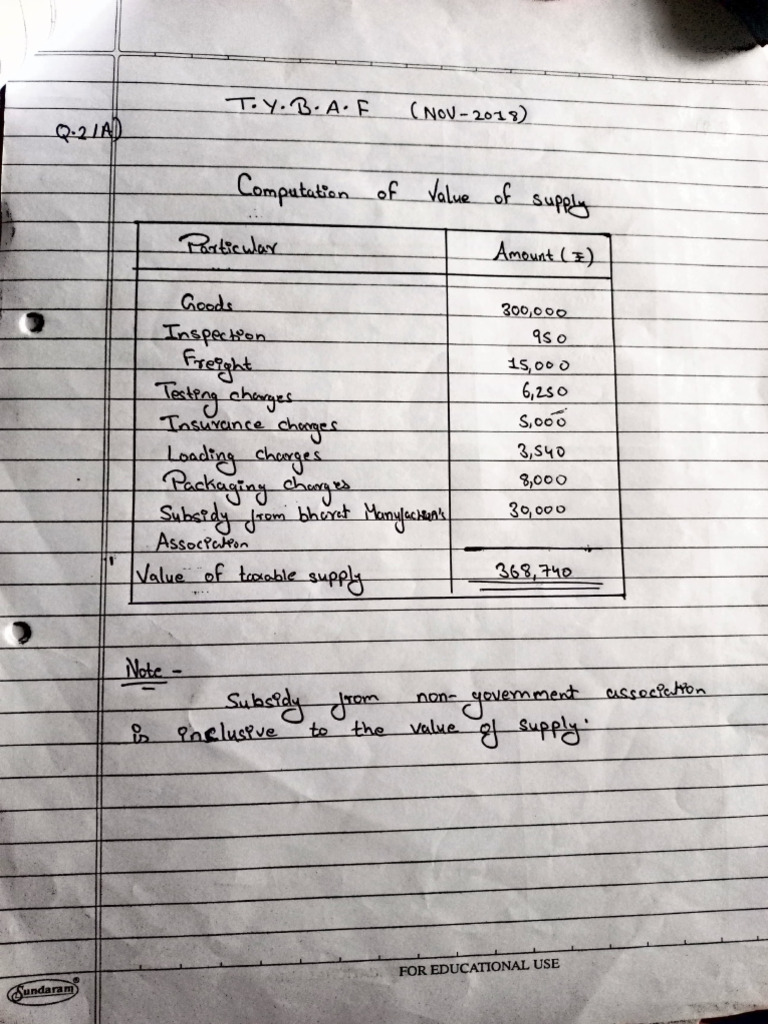 T.Y.B.A.F (NOV-2018)
Q.2/A)
Computation of Value of supply
Particular Amount (₹)
Goods 300,000
Inspection 950
Freight 15,000
Testing charges 6,250
Insurance charges 5,000
Loading charges 3,540
Packaging charges 8,000
Subsidy from bharat Manufacturer's 30,000
Association
Value of taxable supply 368,740
Note -
Subsidy from non-government association
is inclusive to the value of supply.
FOR EDUCATIONAL USE
Sundaram®